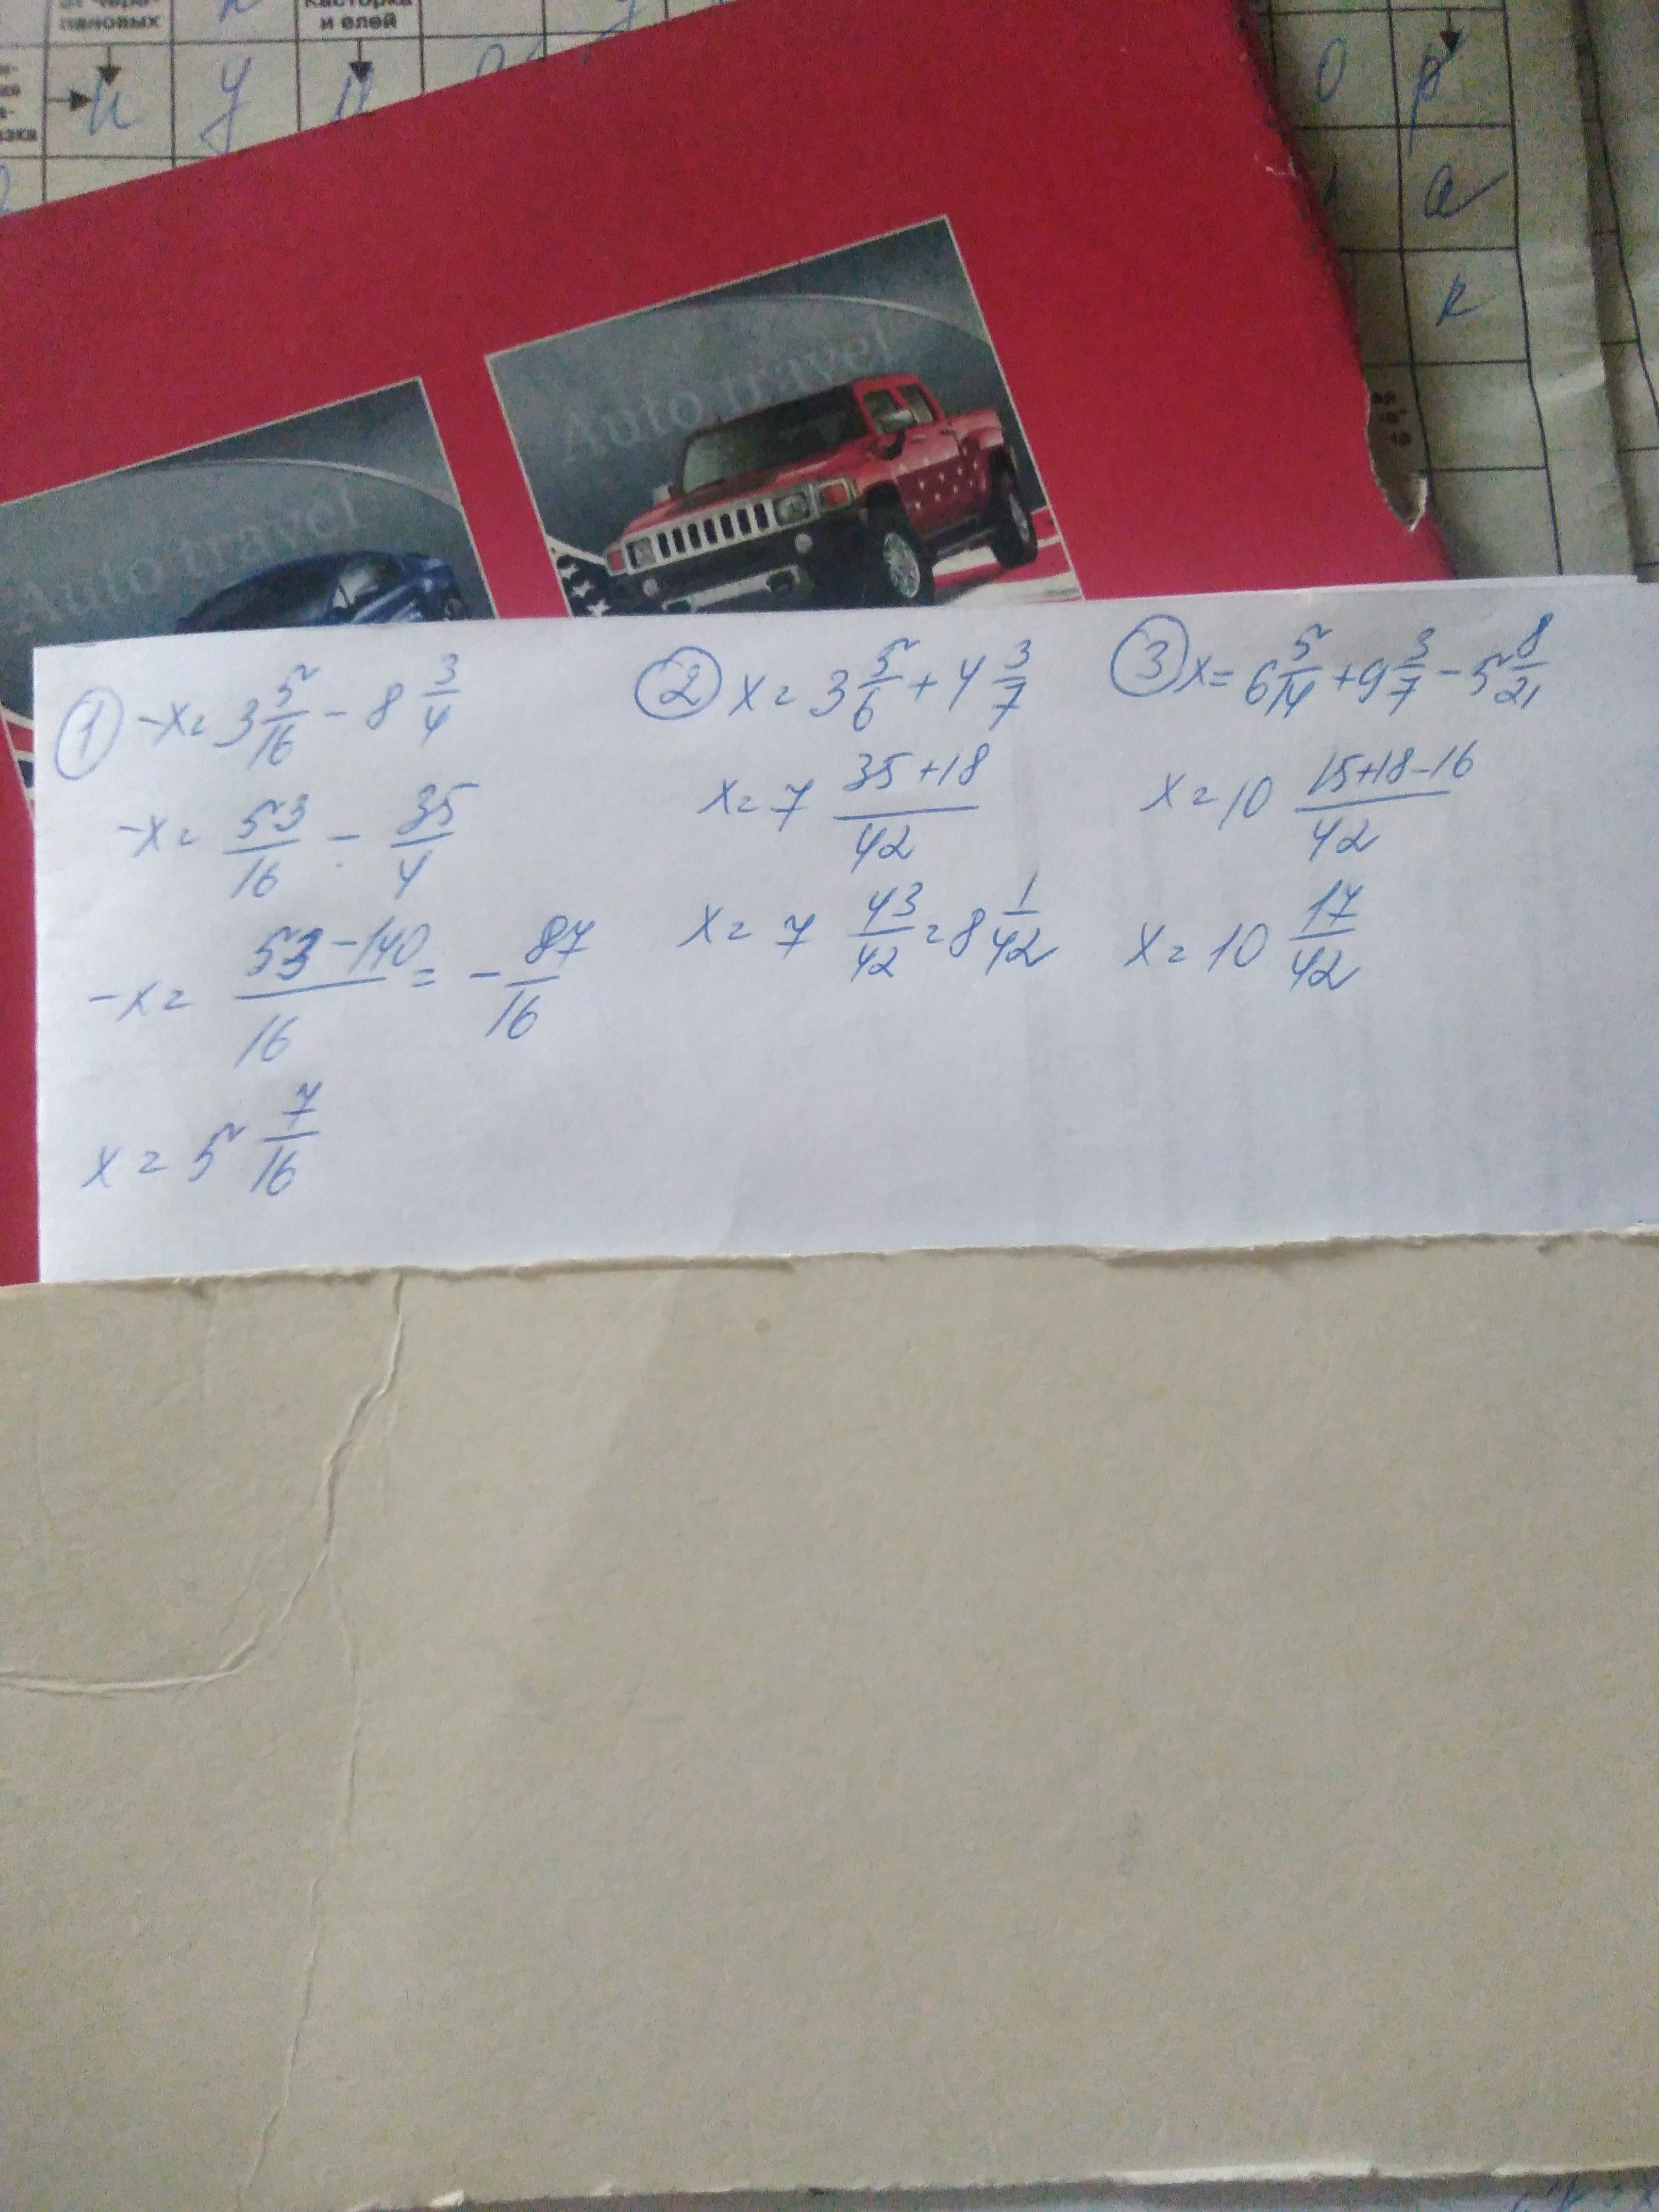 пановых
Касторка
и елей
и у п
о р
а
к
Auto travel
Auto travel
① -x = 3 5/16 - 8 3/4
-x = 53/16 - 35/4
-x = (53-140)/16 = - 87/16
x = 5 7/16
② x = 3 5/6 + 4 3/7
x = 7 (35+18)/42
x = 7 43/42 = 8 1/42
③ x = 6 5/14 + 9 3/7 - 5 8/21
x = 10 (15+18-16)/42
x = 10 17/42